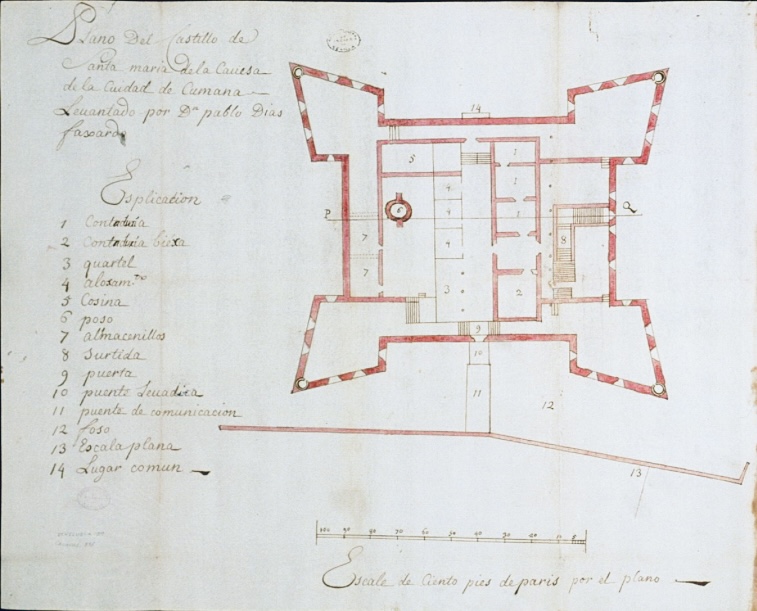 Plano Del Castillo de
Santa maria de la Cauesa
de la Cuidad de Cumana
Leuantado por Dn pablo Dias
faxardo
Esplication
1 Contaduia
2 Contaduia biexa
3 quartel
4 aloxam.to
5 Cosina
6 poso
7 almacenillos
8 Surtida
9 puerta
10 puente Leuadiza
11 puente de comunicacion
12 foso
13 Escala plana
14 Lugar comun
14
5
1
4
1
P
6
4
1
Q
7
4
8
7
3
2
9
10
11
12
13
100 90 80 70 60 50 40 30 20 10
Escale de Ciento pies de paris por el plano